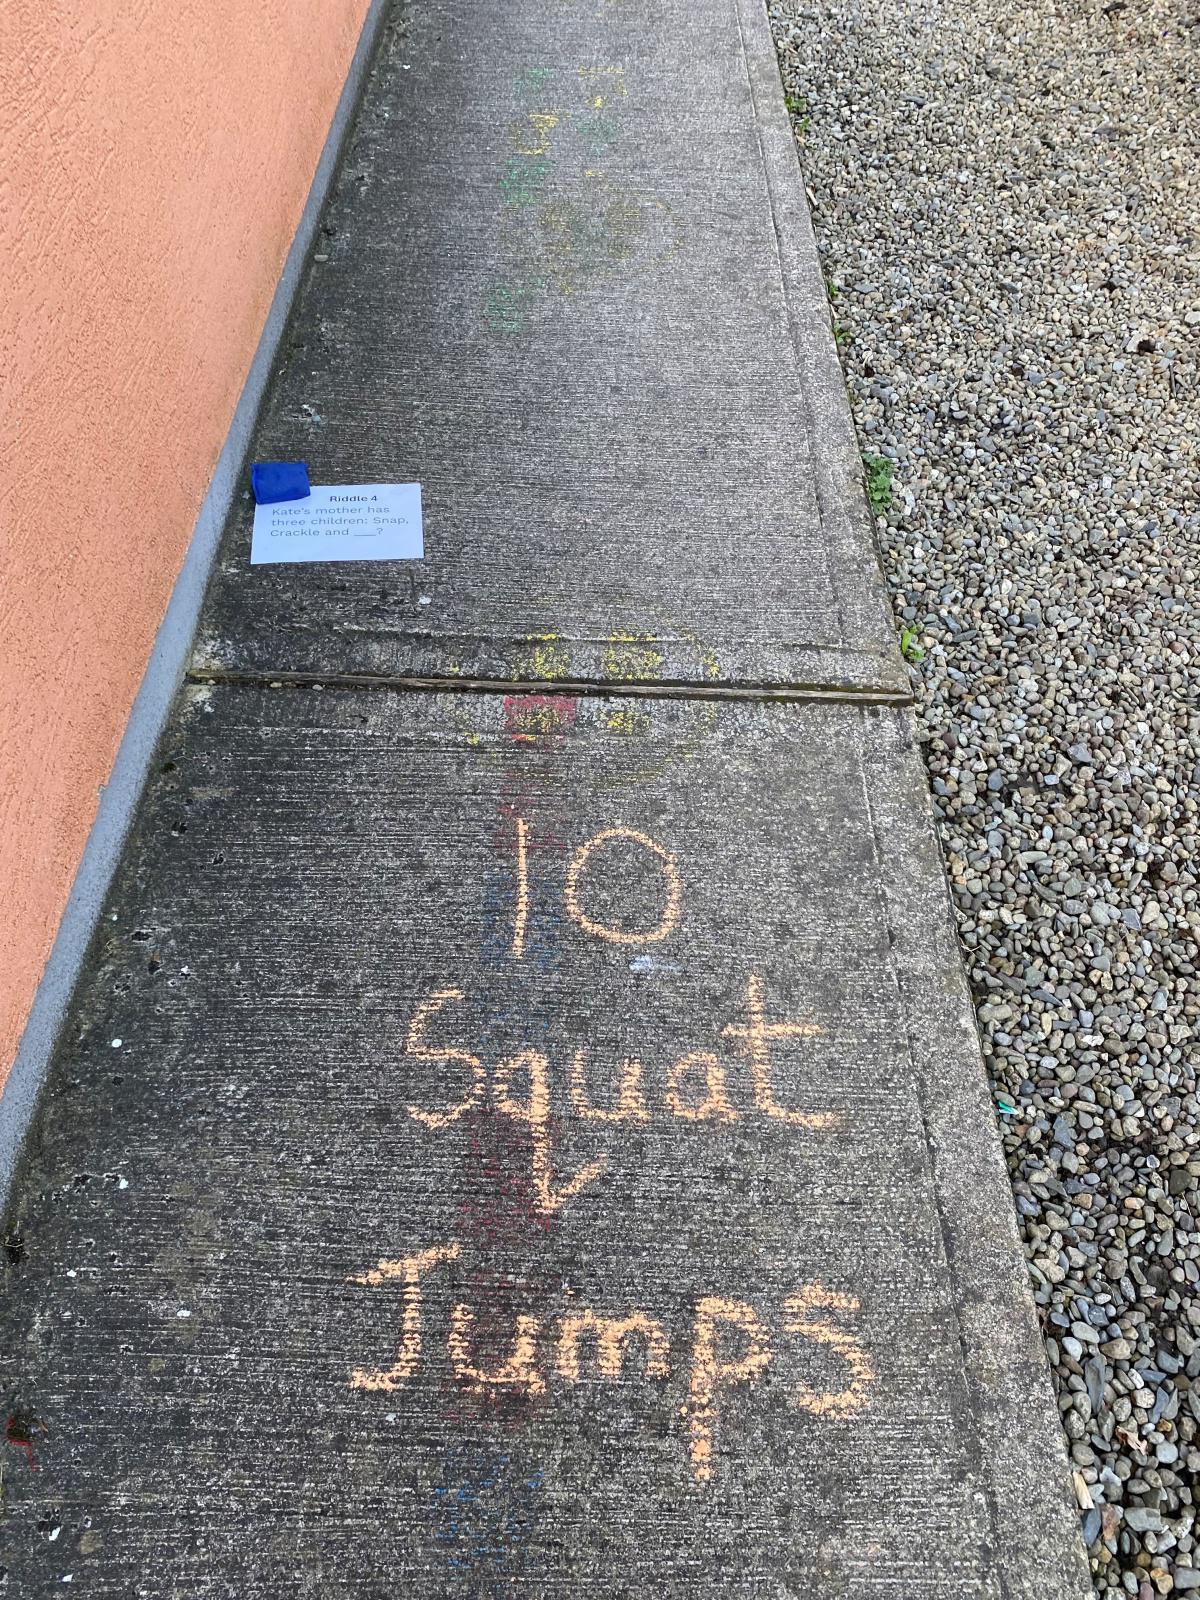 Riddle 4
Kate's mother has
three children: Snap,
Crackle and ___?
10
Squat
Jumps